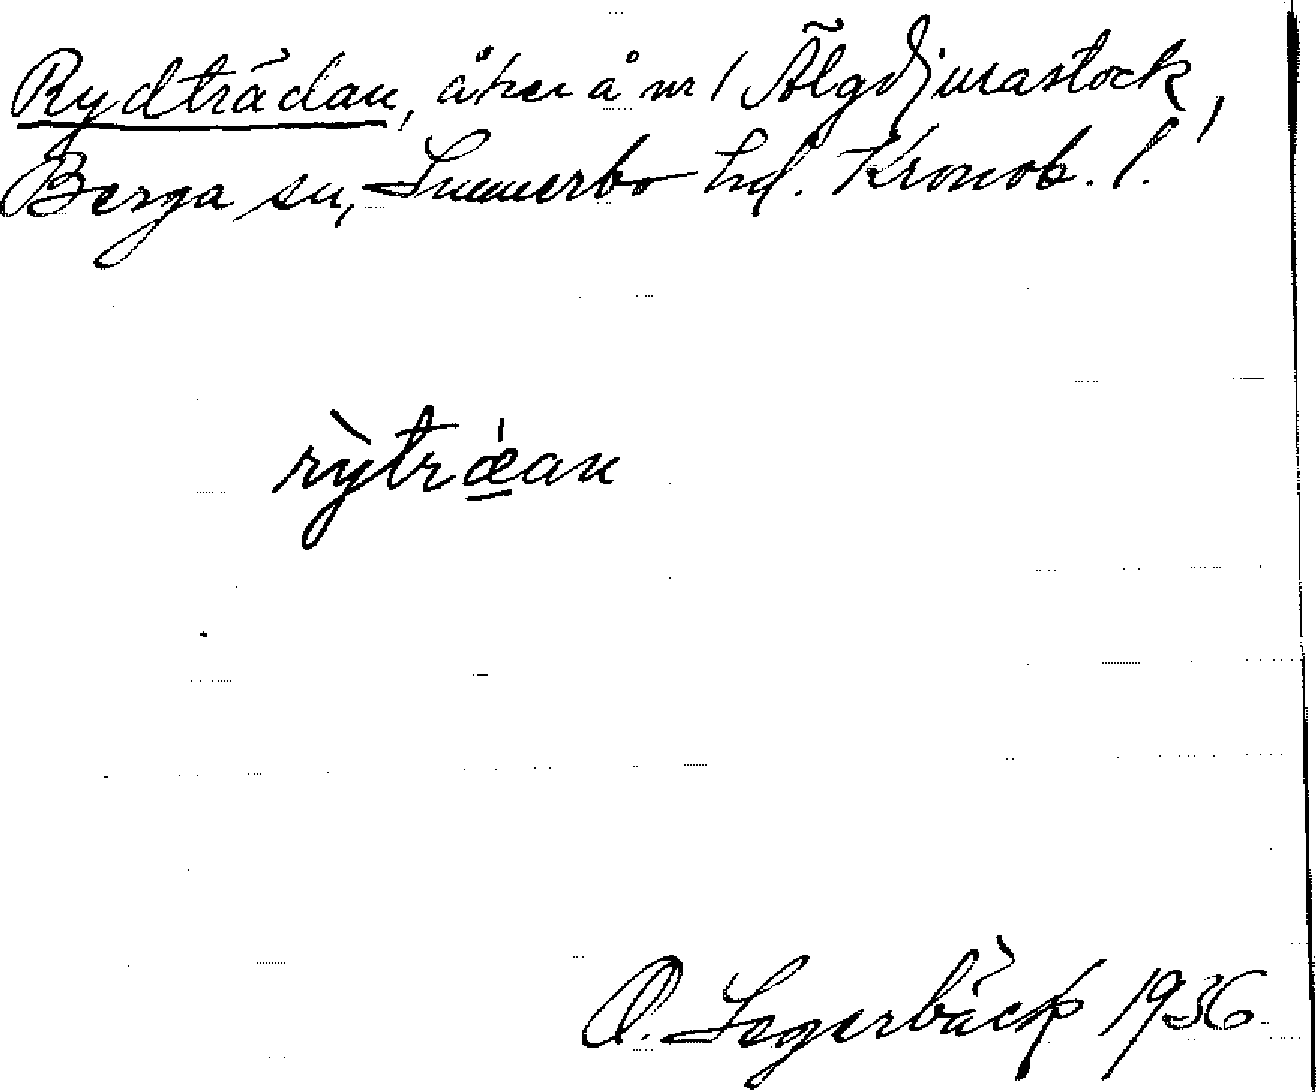 Rydträdan, åker å nr 1 Älgdjurastock,
Berga sn, Sunnerbo hd. Kronob. l.
rỳtræ̠´an
O. Segerbäck 1936